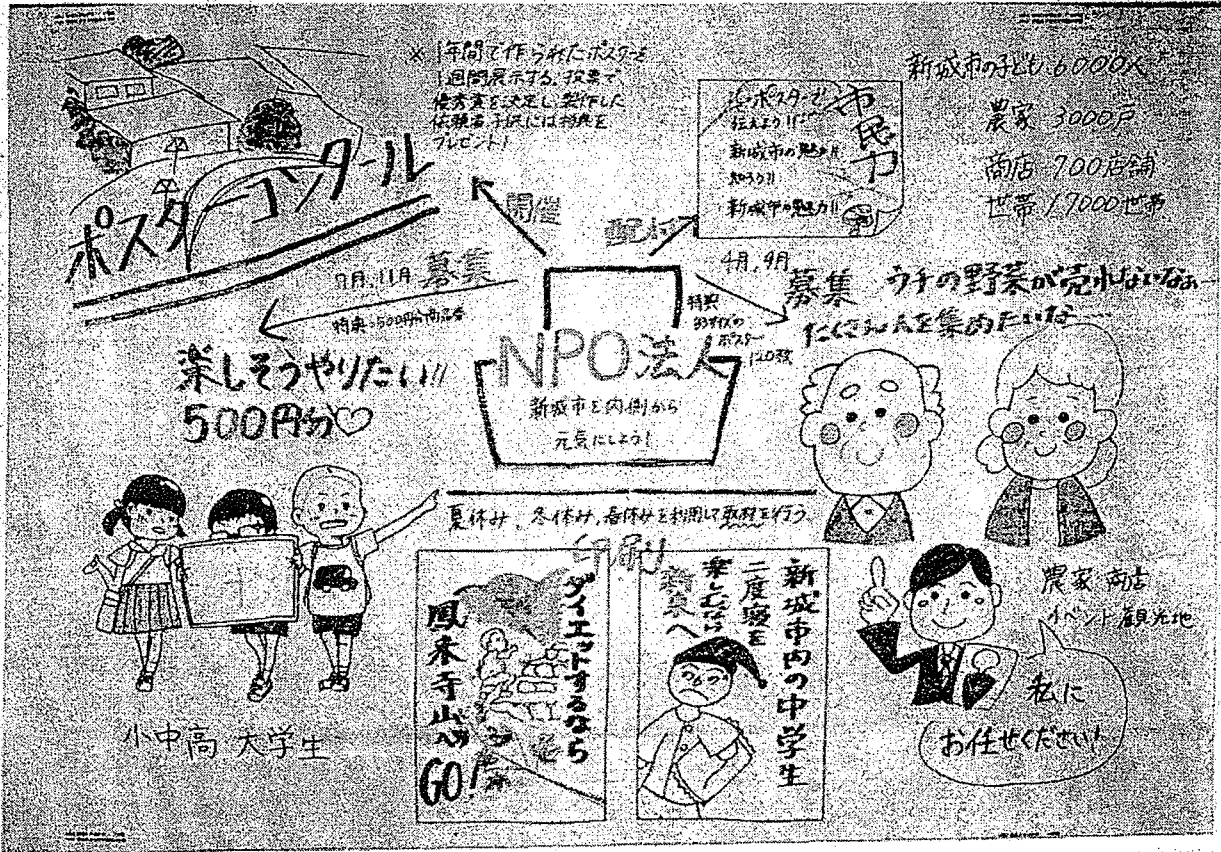 ※1年間で作られたポスターを
1週間展示する。投票で
優秀賞を決定し、製作した
依頼者、子供には特典を
プレゼント!
ポスターコンクール
開催
配布
市民力
ポスターで
伝えよう!!
新城市の魅力!!
知ろう!!
新城市の魅力!!
新城市の子ども 6000人
農家 3000戸
商店 700店舗
世帯 17000世帯
7月、11月 募集
特典:500円分商品券
4月、9月
募集
特典
B3サイズの
ポスター
120枚
ウチの野菜が売れないなぁ
たくさん人を集めたいな……
楽しそうやりたい!!
500円分♡
NPO法人
新城市を内側から
元気にしよう!
夏休み、冬休み、春休みを利用して取材を行う
印刷
ダイエットするなら
鳳来寺山へ
GO!
新城市内の中学生
二度寝を
小中高 大学生
農家・商店
イベント観光地
私に
お任せください!